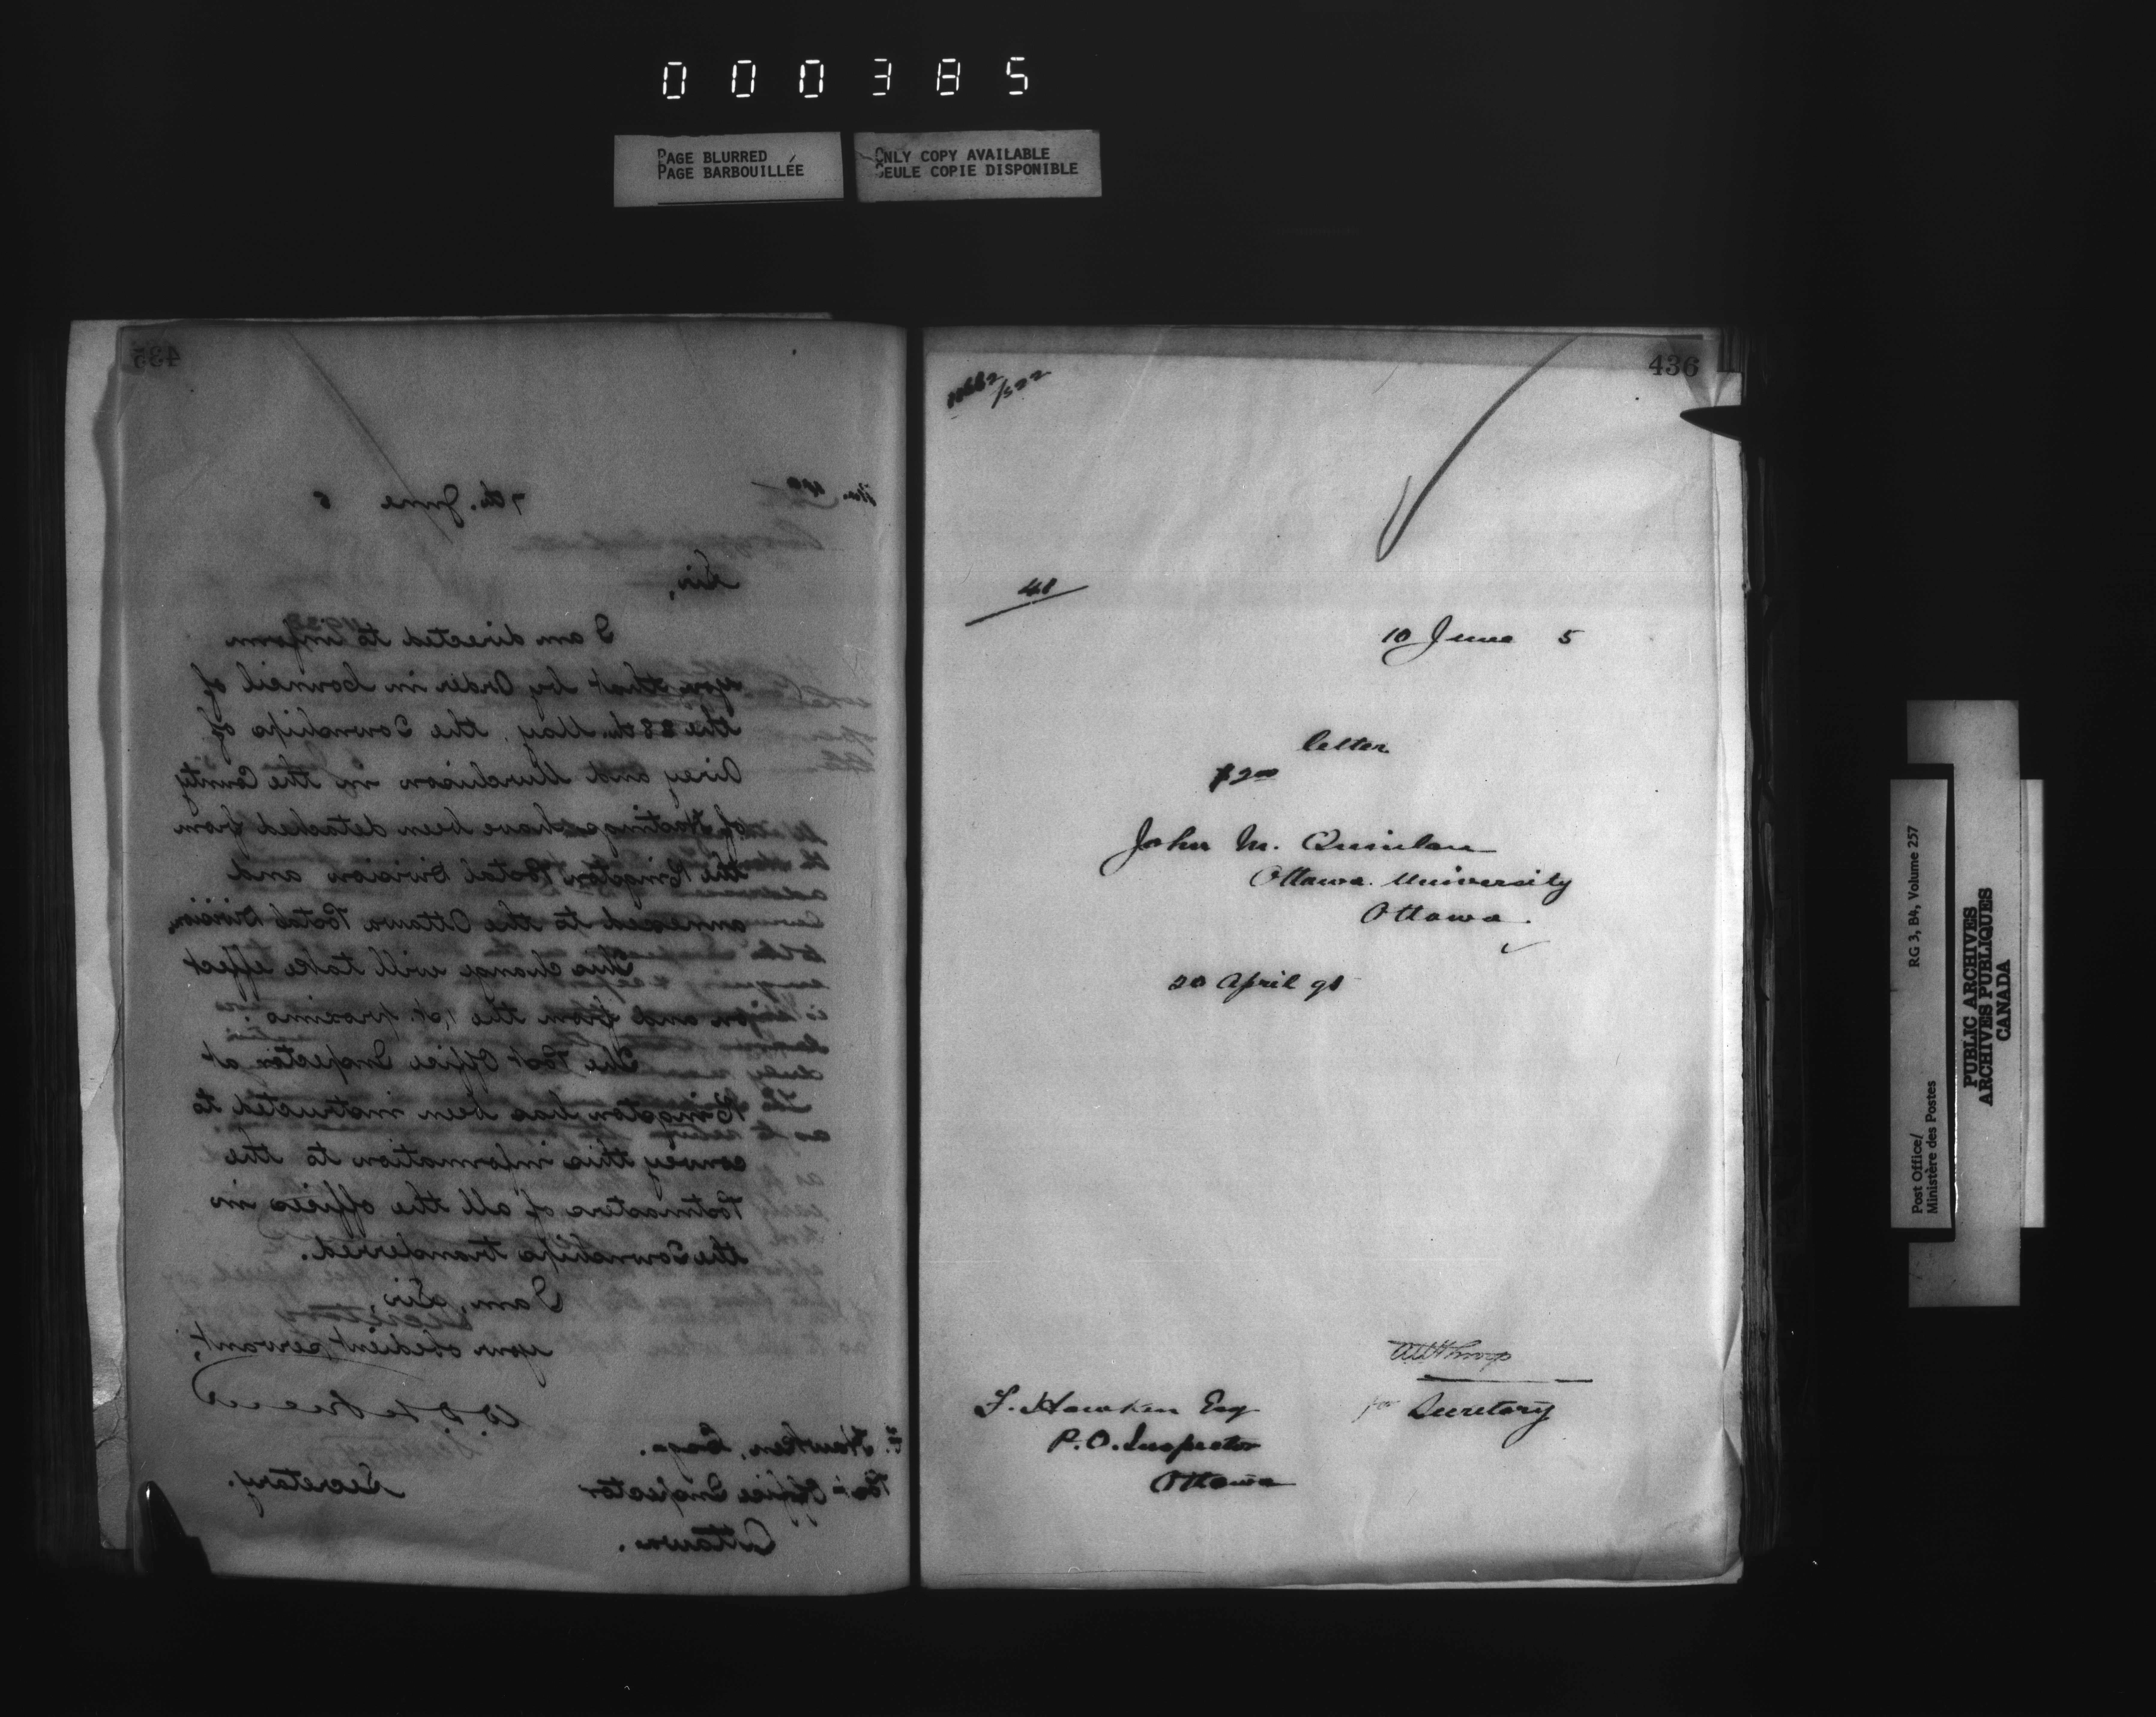 000385
PAGE BLURRED
PAGE BARBOUILLÉE
ONLY COPY AVAILABLE
SEULE COPIE DISPONIBLE
435
7th. June 5
Sir,
I am directed to inform
you that by Order in Council of
the 28th May, the Townships of
Airey and Murchison in the County
of Hastings have been detached from
the Kingston Postal Division and
annexed to the Ottawa Postal Division.
This change will take effect
upon and from the 1st. proximo.
The Post Office Inspector at
Kingston has been instructed to
convey this information to the
Postmasters of all the offices in
the Townships transferred.
I am, Sir,
your obedient servant,
Secretary.
F. Hawken, Esq.
Post Office Inspector
Ottawa.
436
10 June 5
letter
$2.00
John M. Quinlan
Ottawa University
Ottawa.
for Secretary
F. Hawken Esq
P.O. Inspector
Ottawa
Post Office/
Ministère des Postes
RG 3, B4, Volume 257
PUBLIC ARCHIVES
ARCHIVES PUBLIQUES
CANADA